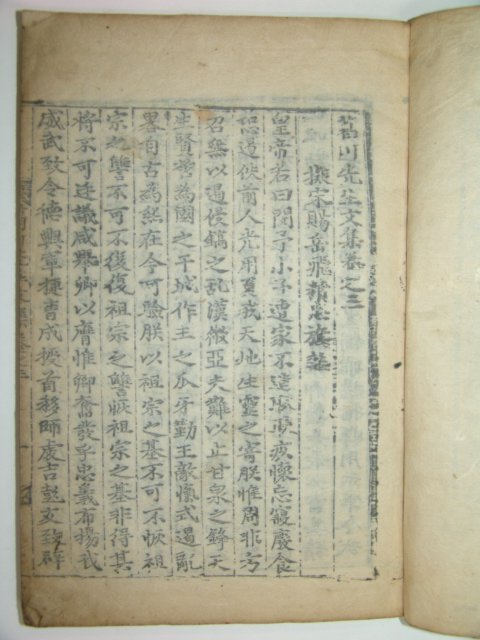 苕川先生文集卷之三
擬宋賜岳飛精忠旗詔
皇帝若曰閔予小子遭家不造夙夜疚懷忘寢廢食
思遏佚前人光用宣我天地生靈之寄朕惟周非方
召無以遏侵鎬之玁漢微亞夫難以止甘泉之烽天
生賢哲為國之干城作王之爪牙勤王敵愾式遏亂
畧自古為然在今可驗朕以祖宗之基不可不恢祖
宗之讐不可不復復祖宗之讐恢祖宗之基非得其
將不可廷議咸擧卿以膺惟卿奮發乎忠義布揚我
威武致令德興輩揮橐成擾首移師處吉彭友致群